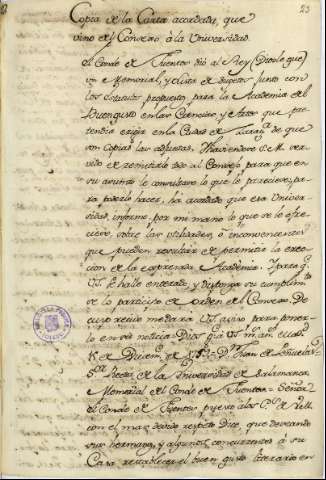 23
Copia de la Carta acordada, que
vino del Consejo á la Universidad.
El Conde de Fuentes dió al Rey (Dios le gue)
un Memorial, y Lista de Sugetos junto con
los estatutos propuesto para la Academia del
Buen gusto en las Ciencias, y Artes que pre-
tendia erigir en la Ciudad de Zarag.ª de que
son Copias las adjuntas. Haviendose S. M. ser-
vido de remitirlo todo al Consejo para que en
su asunto le consultare lo que le pareciere, pa-
ra poderlo hacer, ha acordado que esa Univer-
sidad, informe, por mi mano lo que se le ofre-
ciere, sobre las utilidades, ó inconvenientes
que pueden resultar de permitir la erec-
cion de la expresada Academia. Y para q.
VS. se halle enterado, y disponga su cumplim.to
lo participo de orden del Consejo. De
cuyo recivo me dará VS. aviso para poner-
lo en su noticia = Dios gue. á VS. m. an.
de Diciem.
Universidad de Salamanca
Memorial del Conde de Fuentes = Señor
El Conde de Fuentes puesto a los de V.
con el mas devido respeto Dice, que deseando
sus hermanos, y algunos concurrentes á su
Casa restablecer el buen gusto literario en